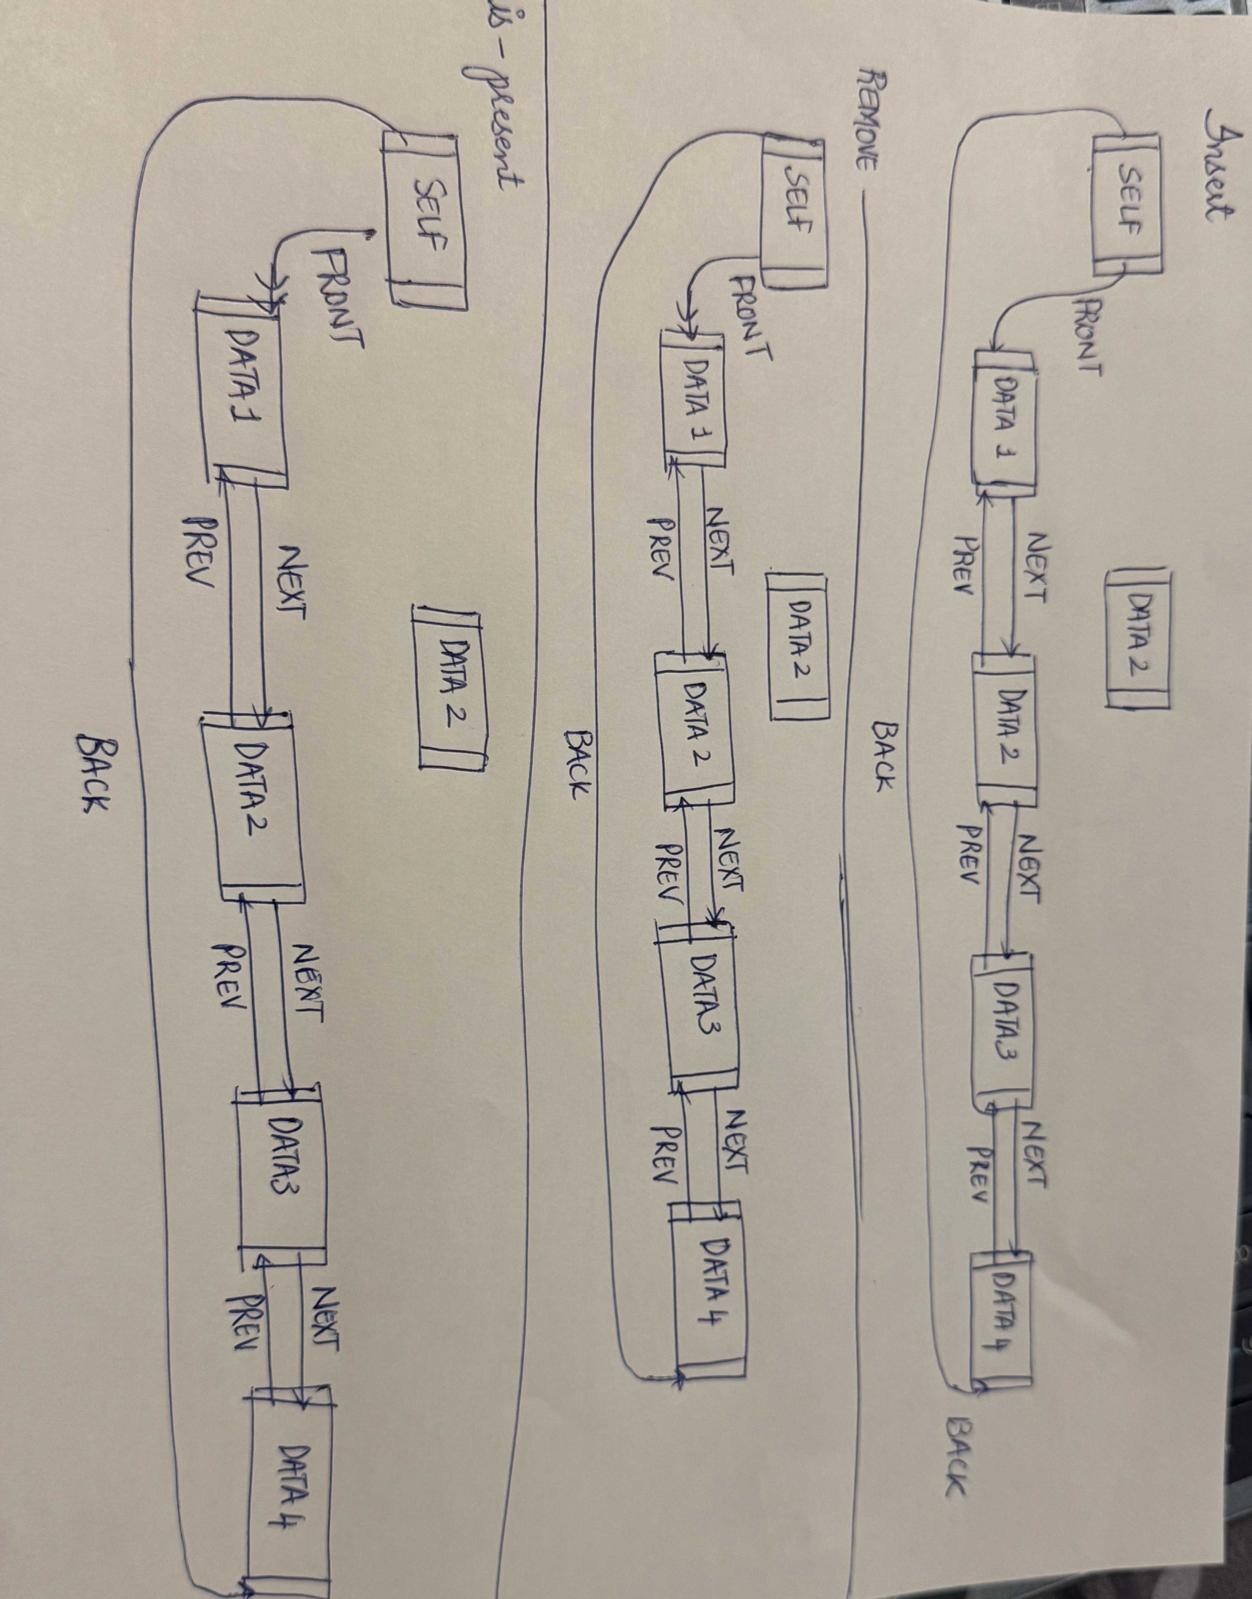 Insert
SELF
DATA 2
FRONT
DATA 1
NEXT
PREV
DATA 2
NEXT
PREV
DATA3
NEXT
PREV
DATA 4
BACK
BACK
REMOVE
SELF
DATA2
FRONT
DATA 1
NEXT
PREV
DATA 2
NEXT
PREV
DATA3
NEXT
PREV
DATA 4
BACK
is-present
SELF
DATA 2
FRONT
DATA1
NEXT
PREV
DATA2
NEXT
PREV
DATA3
NEXT
PREV
DATA 4
BACK